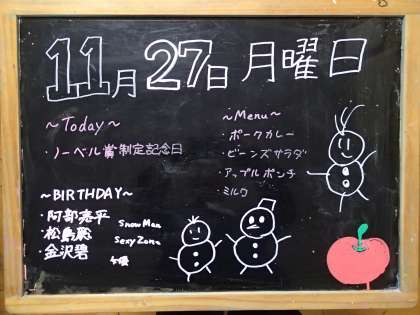 11月27日 月曜日
~Today~
・ノーベル賞制定記念日
~Menu~
・ポークカレー
・ビーンズサラダ
・アップルポンチ
・ミルク
~BIRTHDAY~
・阿部亮平 Snow Man
・松島聡 Sexy Zone
・金沢碧 女優